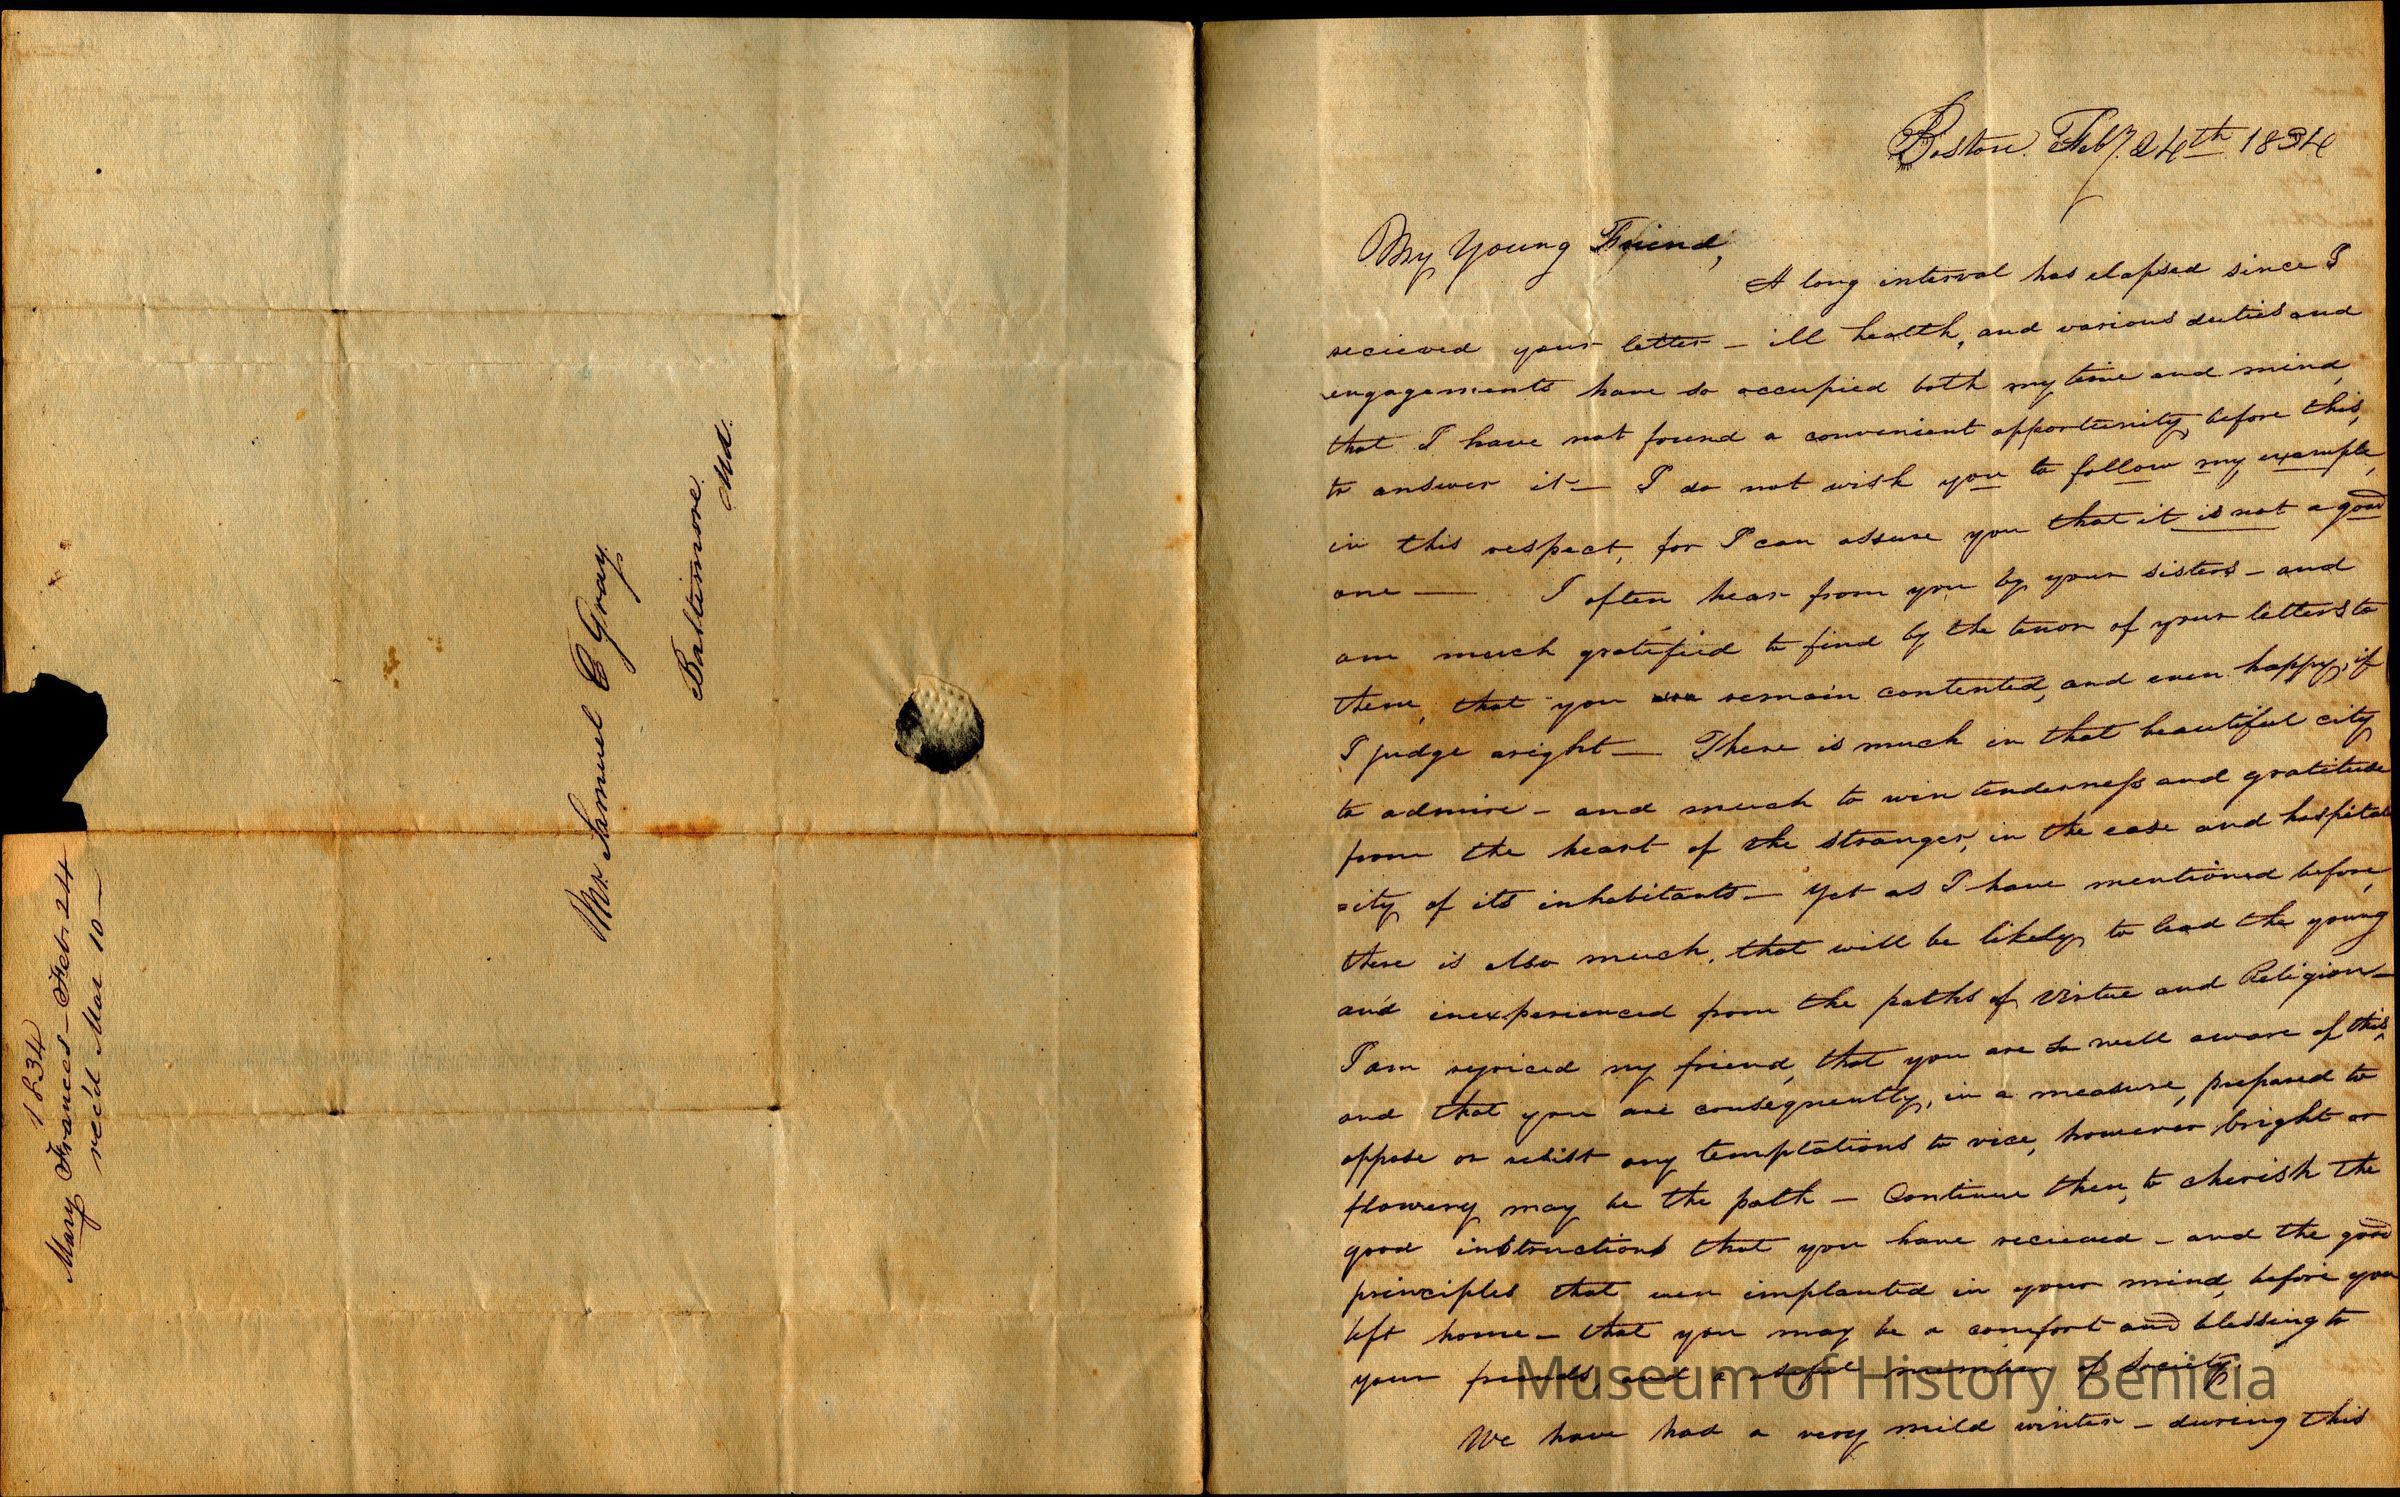 1834
Mary Frances - Feb. 24
rec'd Mar 10 —
Mr. Samuel C Gray.
Baltimore.
Md.
Boston. Feby. 24th 1834
My Young Friend,
A long interval has elapsed since I
recieved your letter — ill health, and various duties and
engagements have so occupied both my time and mind,
that I have not found a convenient opportunity, before this,
to answer it — I do not wish you to follow my example,
in this respect, for I can assure you that it is not a good
one — I often hear from you by your sisters — and
am much gratified to find by the tenor of your letters to
them, that you remain contented, and even happy, if
I judge aright — There is much in that beautiful city
to admire — and much to win tenderness and gratitude
from the heart of the stranger, in the ease and hospital
=ity of its inhabitants — Yet as I have mentioned before,
there is also much, that will be likely to lead the young
and inexperienced from the paths of Virtue and Religion —
I am rejoiced my friend, that you are so well aware of this,
and that you are consequently, in a measure, prepared to
oppose or resist any temptations to vice, however bright or
flowery may be the path — Continue then, to cherish the
good instructions that you have recieved — and the good
principles that were implanted in your mind, before you
left home — that you may be a comfort and blessing to
your friends, and a useful member of society.
We have had a very mild winter — during this
Museum of History Benicia